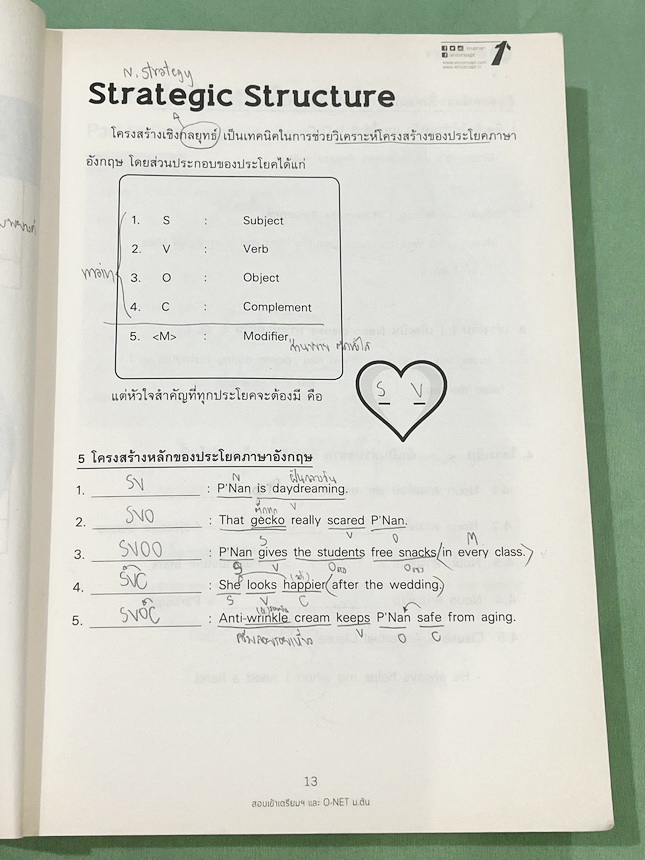 1
N. Strategy
Strategic Structure
โครงสร้างเชิงกลยุทธ์ เป็นเทคนิคในการช่วยวิเคราะห์โครงสร้างของประโยคภาษา
อังกฤษ โดยส่วนประกอบของประโยคได้แก่
1. S : Subject
2. V : Verb
main 3. O : Object
4. C : Complement
5. <M> : Modifier
แต่หัวใจสำคัญที่ทุกประโยคจะต้องมี คือ S V
5 โครงสร้างหลักของประโยคภาษาอังกฤษ
N
1. SV : P'Nan is daydreaming.
V
ตุ๊กแก
2. SVO : That gecko really scared P'Nan.
S V O
M
3. SVOO : P'Nan gives the students free snacks (in every class.)
S V O O
4. SVC : She looks happier (after the wedding.)
S V C
5. SVOC : Anti-wrinkle cream keeps P'Nan safe from aging.
V O C
13
สอบเข้าเตรียมฯ และ O-NET ม.ต้น